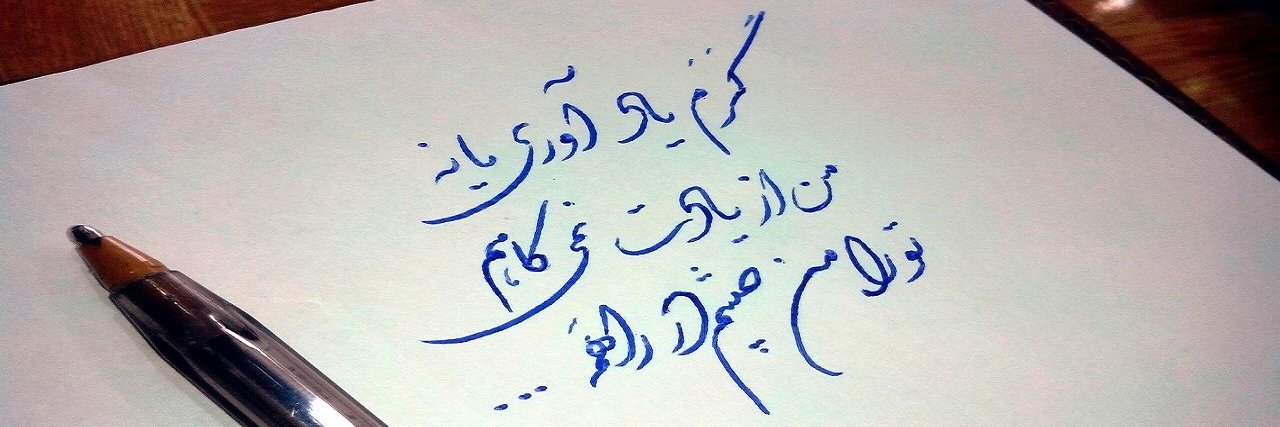 گرم یاد آوری یا نه
من از یادت نمی کاهم
تو را من چشم در راهم ...